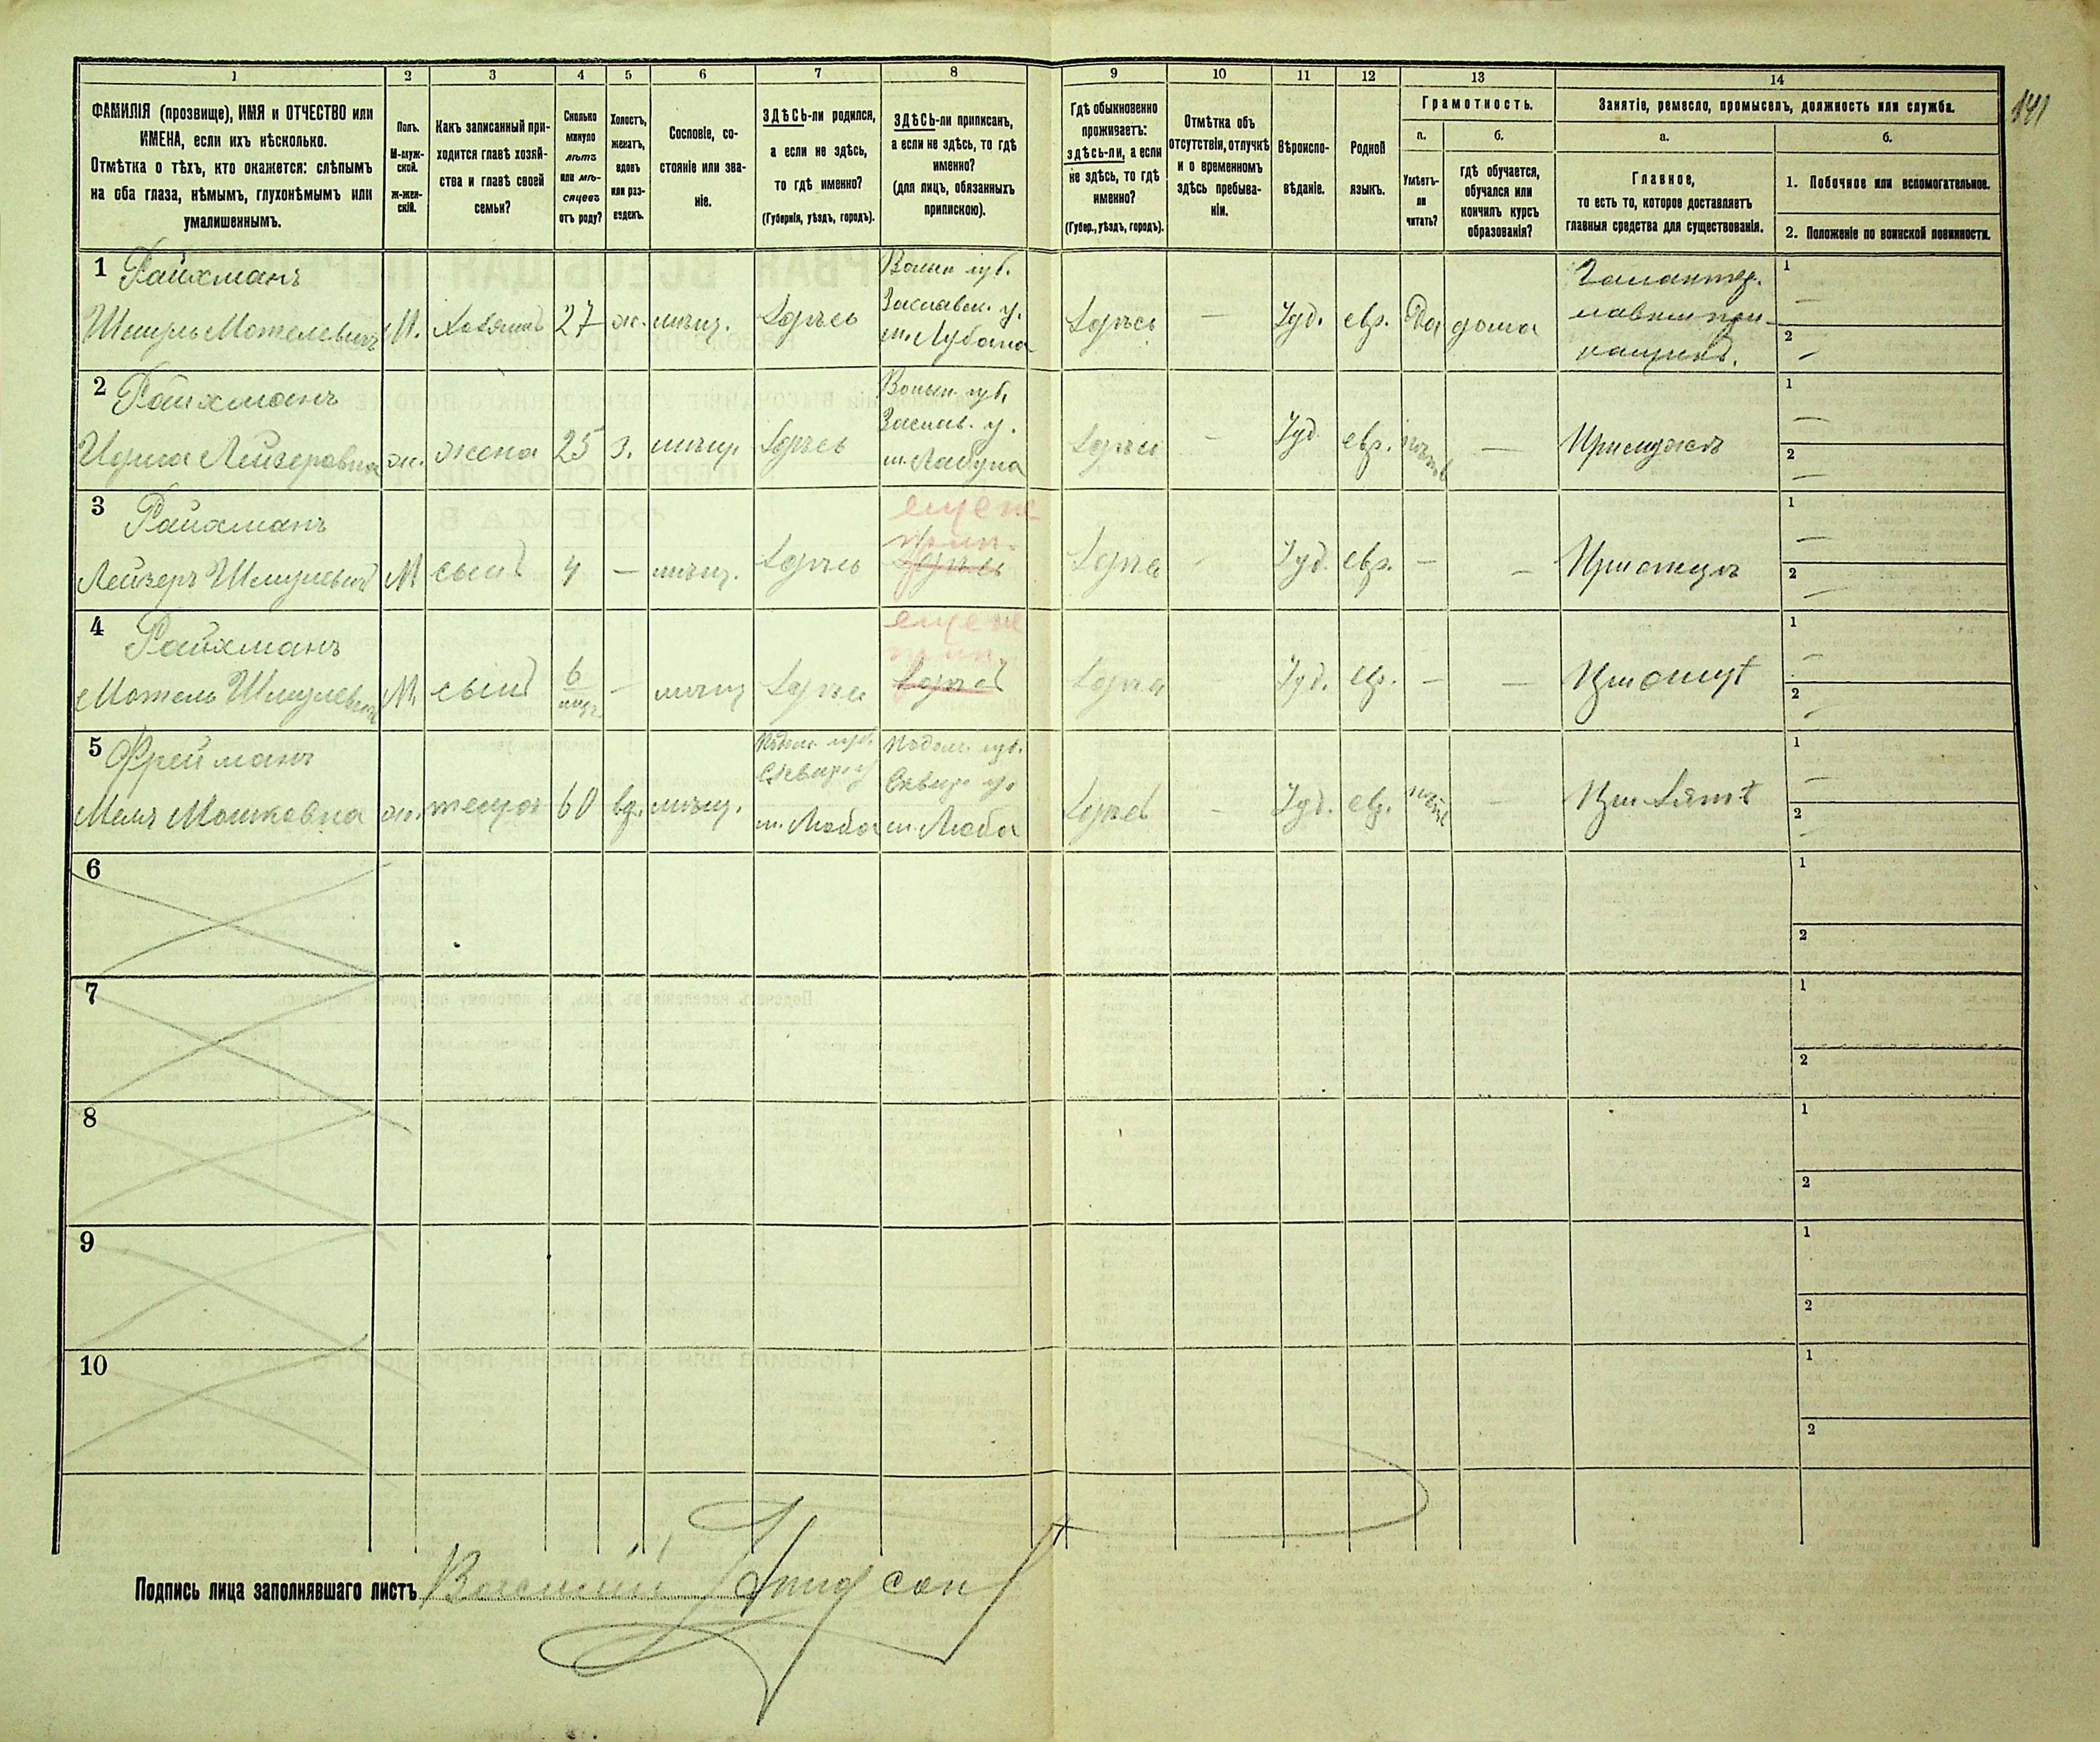 141
1 2 3 4 5 6 7 8 9 10 11 12 13 14
ФАМИЛІЯ (прозвище), ИМЯ и ОТЧЕСТВО или
ИМЕНА, если ихъ нѣсколько.
Отмѣтка о тѣхъ, кто окажется: слѣпымъ
на оба глаза, нѣмымъ, глухонѣмымъ или
умалишеннымъ.
Полъ.
М-муж-
ской.
ж-жен-
скій.
Какъ записанный при-
ходится главѣ хозяй-
ства и главѣ своей
семьи?
Сколько
минуло
лѣтъ
или мѣ-
сяцевъ
отъ роду?
Холостъ,
женатъ,
вдовъ
или раз-
веденъ.
Сословіе, со-
стояніе или зва-
ніе.
ЗДѢСЬ-ли родился,
а если не здѣсь,
то гдѣ именно?
(Губернія, уѣздъ, городъ).
ЗДѢСЬ-ли приписанъ,
а если не здѣсь, то гдѣ
именно?
(для лицъ, обязанныхъ
припискою).
Гдѣ обыкновенно
проживаетъ:
здѣсь-ли, а если
не здѣсь, то гдѣ
именно?
(Губер., уѣздъ, городъ).
Отмѣтка объ
отсутствіи, отлучкѣ
и о временномъ
здѣсь пребыва-
ніи.
Вѣроиспо-
вѣданіе.
Родной
языкъ.
Грамотность.
а.
Умѣетъ-
ли
читать?
б.
гдѣ обучается,
обучался или
кончилъ курсъ
образованія?
Занятіе, ремесло, промыселъ, должность или служба.
а.
Главное,
то есть то, которое доставляетъ
главныя средства для существованія.
б.
1. Побочное или вспомогательное.
2. Положеніе по воинской повинности.
1 Райхманъ
Шмуль Мотелевичъ
М.
хозяинъ
27
ж.
мѣщ.
Здѣсь
Волын губ.
Заславск. у.
Здѣсь
—
Іуд.
евр.
Да
дома
Галантер.
1 —
2 —
2 Райхманъ
Лейзеровна
ж.
жена
25
з.
мѣщ.
Здѣсь
Волын. губ.
Заслав. у.
м. Лабунa
Здѣсь
—
Іуд.
евр.
нѣтъ
—
При мужѣ
1 —
2 —
3 Райхманъ
Лейзеръ Шмулевичъ
М
сынъ
4
—
мѣщ.
Здѣсь
еще не
прип.
Здѣсь
Здѣсь
-
Іуд.
евр.
—
—
При отцѣ
1 —
2 —
4 Райхманъ
Мотель Шмулевичъ
М
сынъ
6
мѣс.
—
мѣщ
Здѣсь
еще не
прип.
Здѣсь
Здѣсь
Іуд.
евр.
—
—
При отцѣ
1 —
2 —
5 Фрейманъ
Мошковна
ж.
теща
60
вд.
мѣщ.
Подол. губ.
м. Люба
Подол. губ.
м. Люба
Здѣсь
-
Іуд.
евр.
нѣтъ
—
При зятѣ
1 —
2 —
6 1
2
7 1
2
8 1
2
9 1
2
10 1
2
Подпись лица заполнявшаго листъ Василій